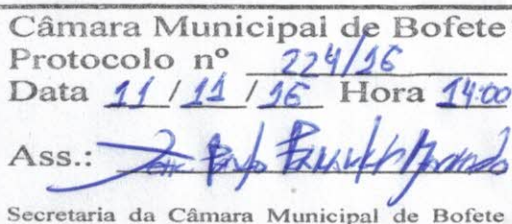 Câmara Municipal de Bofete
Protocolo nº 224/16
Data 11/11/16 Hora 14:00
Ass.:
Secretaria da Câmara Municipal de Bofete